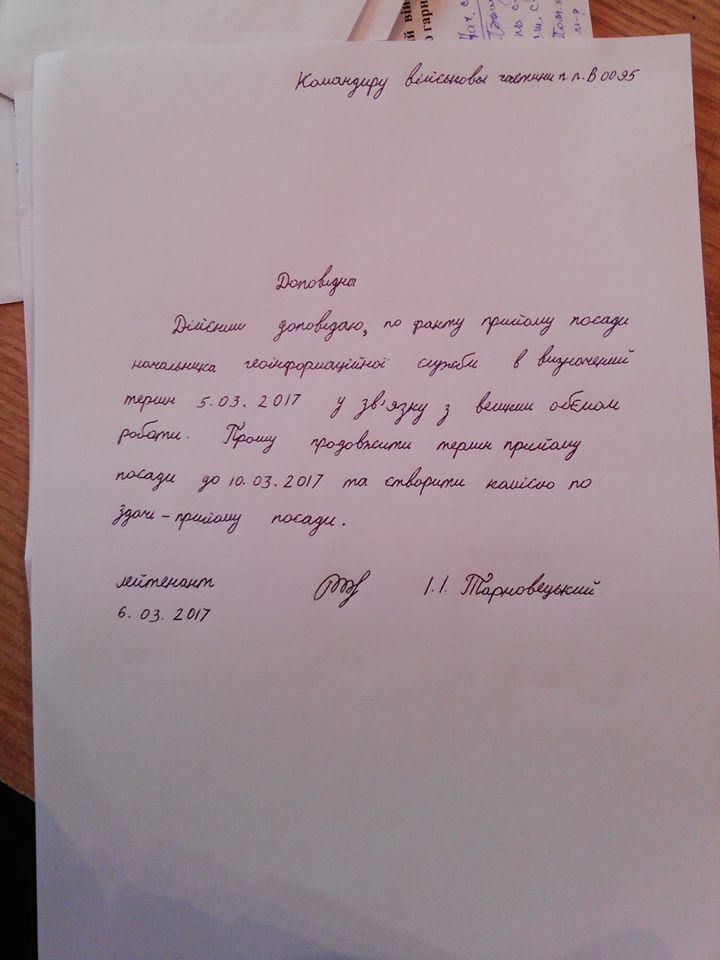 Командиру військової частини п п.В0095
Доповідна
Дійсним доповідаю, по факту прийому посади
начальника геоінформаційної служби в визначений
термін 5.03.2017 у зв'язку з вещим обємом
роботи. Прошу продовжити термін прийому
посади до 10.03.2017 та створити комісію по
здачі-прийому посади.
лейтенант І.І. Тарновецький
6.03.2017